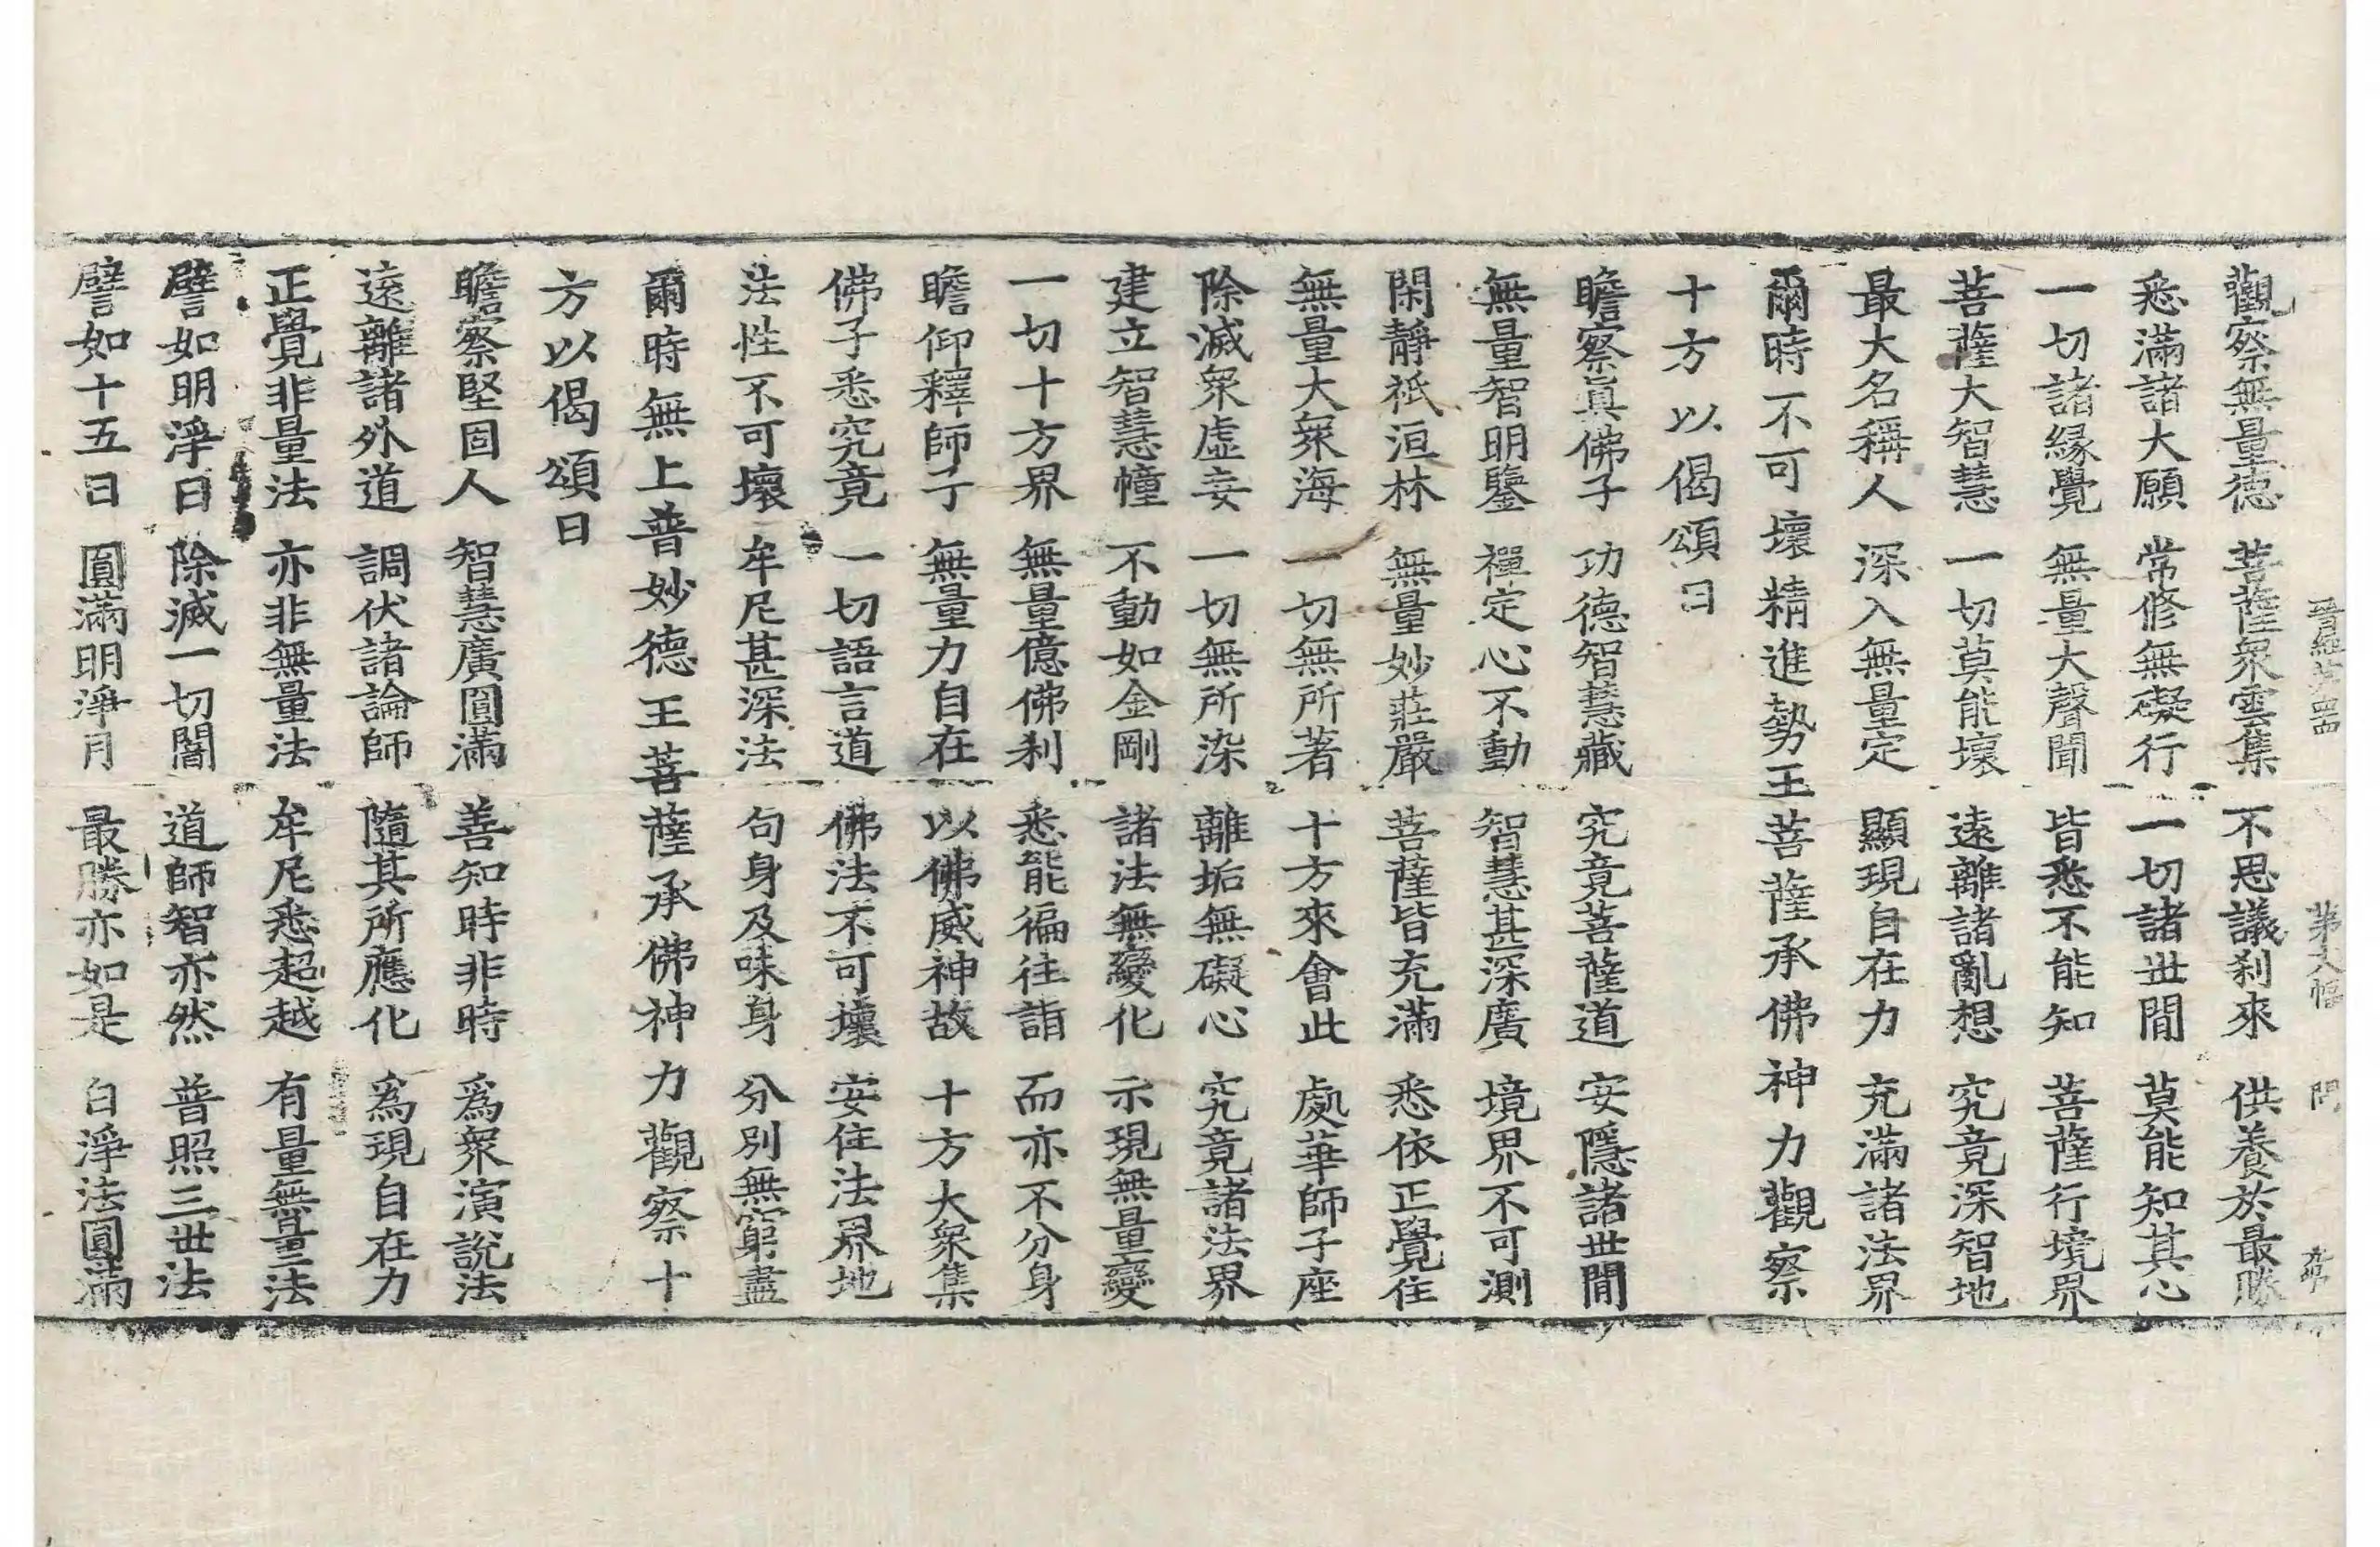 晉經卄四 第大幅 問 九常
觀察無量德 菩薩衆雲集 不思議刹來 供養於最勝
悉滿諸大願 常修無礙行 一切諸世間 莫能知其心
一切諸縁覺 無量大聲聞 皆悉不能知 菩薩行境界
菩薩大智慧 一切莫能壞 遠離諸亂想 究竟深智地
最大名稱人 深入無量定 顯現自在力 充滿諸法界
爾時不可壞精進勢王菩薩承佛神力觀察
十方以偈頌曰
瞻察眞佛子 功德智慧藏 究竟菩薩道 安隱諸世間
無量智明鑒 禪定心不動 智慧甚深廣 境界不可測
閑靜祇洹林 無量妙莊嚴 菩薩皆充滿 悉依正覺住
無量大衆海 一切無所著 十方來會此 處華師子座
除滅衆虛妄 一切無所染 離垢無礙心 究竟諸法界
建立智慧幢 不動如金剛 諸法無變化 示現無量變
一切十方界 無量億佛刹 悉能徧往詣 而亦不分身
瞻仰釋師子 無量力自在 以佛威神故 十方大衆集
佛子悉究竟 一切語言道 佛法不可壞 安住法界地
法性不可壞 牟尼甚深法 句身及味身 分別無窮盡
爾時無上普妙德王菩薩承佛神力觀察十
方以偈頌曰
瞻察堅固人 智慧廣圓滿 善知時非時 爲衆演說法
遠離諸外道 調伏諸論師 隨其所應化 爲現自在力
正覺非量法 亦非無量法 牟尼悉超越 有量無量法
譬如明淨日 除滅一切闇 道師智亦然 普照三世法
譬如十五日 圓滿明淨月 最勝亦如是 白淨法圓滿